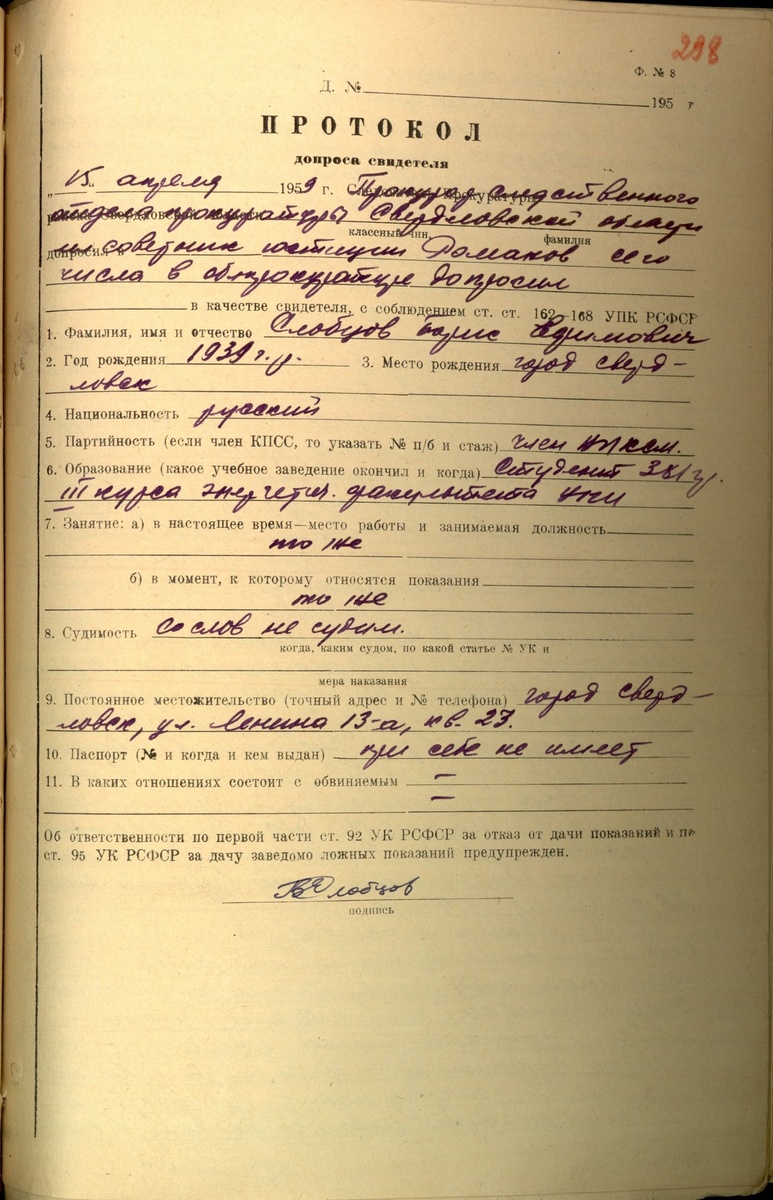 298
Ф. № 8
Д. № 195 г
ПРОТОКОЛ
допроса свидетеля
„15" апреля 1959 г. Прокурор следственного
отдела прокуратуры Свердловской области
классный чин, фамилия
мл советник юстиции Романов сего
числа в облпрокуратуре допросил
в качестве свидетеля, с соблюдением ст. ст. 162–168 УПК РСФСР
1. Фамилия, имя и отчество Слобцов Борис Ефимович
2. Год рождения 1939 г.р. 3. Место рождения город Сверд-
ловск
4. Национальность русский
5. Партийность (если член КПСС, то указать № п/б и стаж) член ВЛКСМ.
6. Образование (какое учебное заведение окончил и когда) Студент
III курса энергетич. факультета УПИ
7. Занятие: а) в настоящее время—место работы и занимаемая должность
то же
б) в момент, к которому относятся показания
то же
8. Судимость со слов не судим.
когда, каким судом, по какой статье № УК и
мера наказания
9. Постоянное местожительство (точный адрес и № телефона) город Сверд-
ловск, ул. Ленина 13-а, кв. 23.
10. Паспорт (№ и когда и кем выдан) при себе не имеет
11. В каких отношениях состоит с обвиняемым —
—
Об ответственности по первой части ст. 92 УК РСФСР за отказ от дачи показаний и по
ст. 95 УК РСФСР за дачу заведомо ложных показаний предупрежден.
Слобцов
подпись